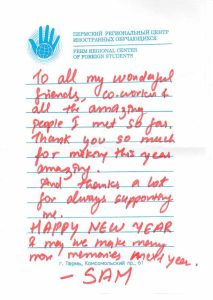 ПЕРМСКИЙ РЕГИОНАЛЬНЫЙ ЦЕНТР
ИНОСТРАННЫХ ОБУЧАЮЩИХСЯ
PERM REGIONAL CENTER
OF FOREIGN STUDENTS
To all my wonderful
friends, co.workers &
all the amazing
people I met so far.
Thank you so much
for making this year
amazing.
And thanks a lot
for always supporting
me.
HAPPY NEW YEAR
& may we make many
more memories next year.
г. Пермь, Комсомольский пр., 61
- SAM